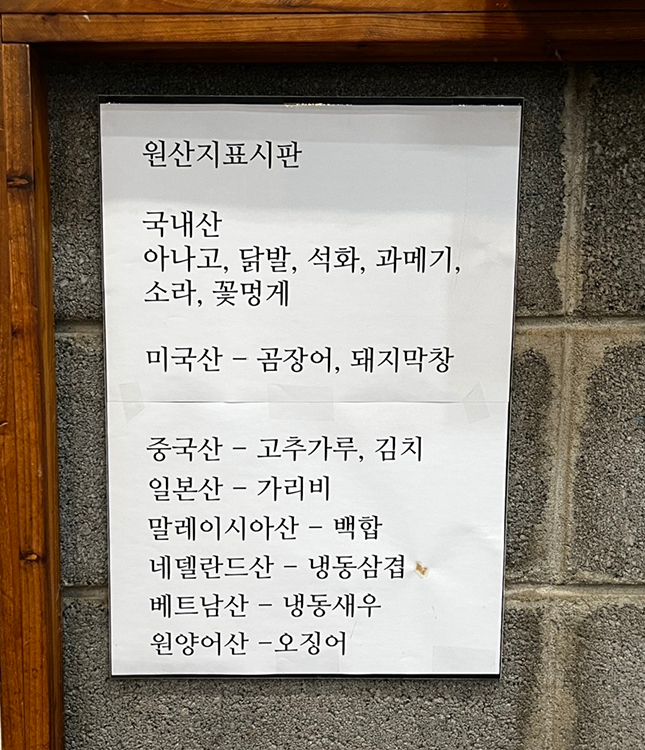 원산지표시판
국내산
아나고, 닭발, 석화, 과메기,
소라, 꽃멍게
미국산 - 곰장어, 돼지막창
중국산 - 고추가루, 김치
일본산 - 가리비
말레이시아산 - 백합
네델란드산 - 냉동삼겹
베트남산 - 냉동새우
원양어산 -오징어